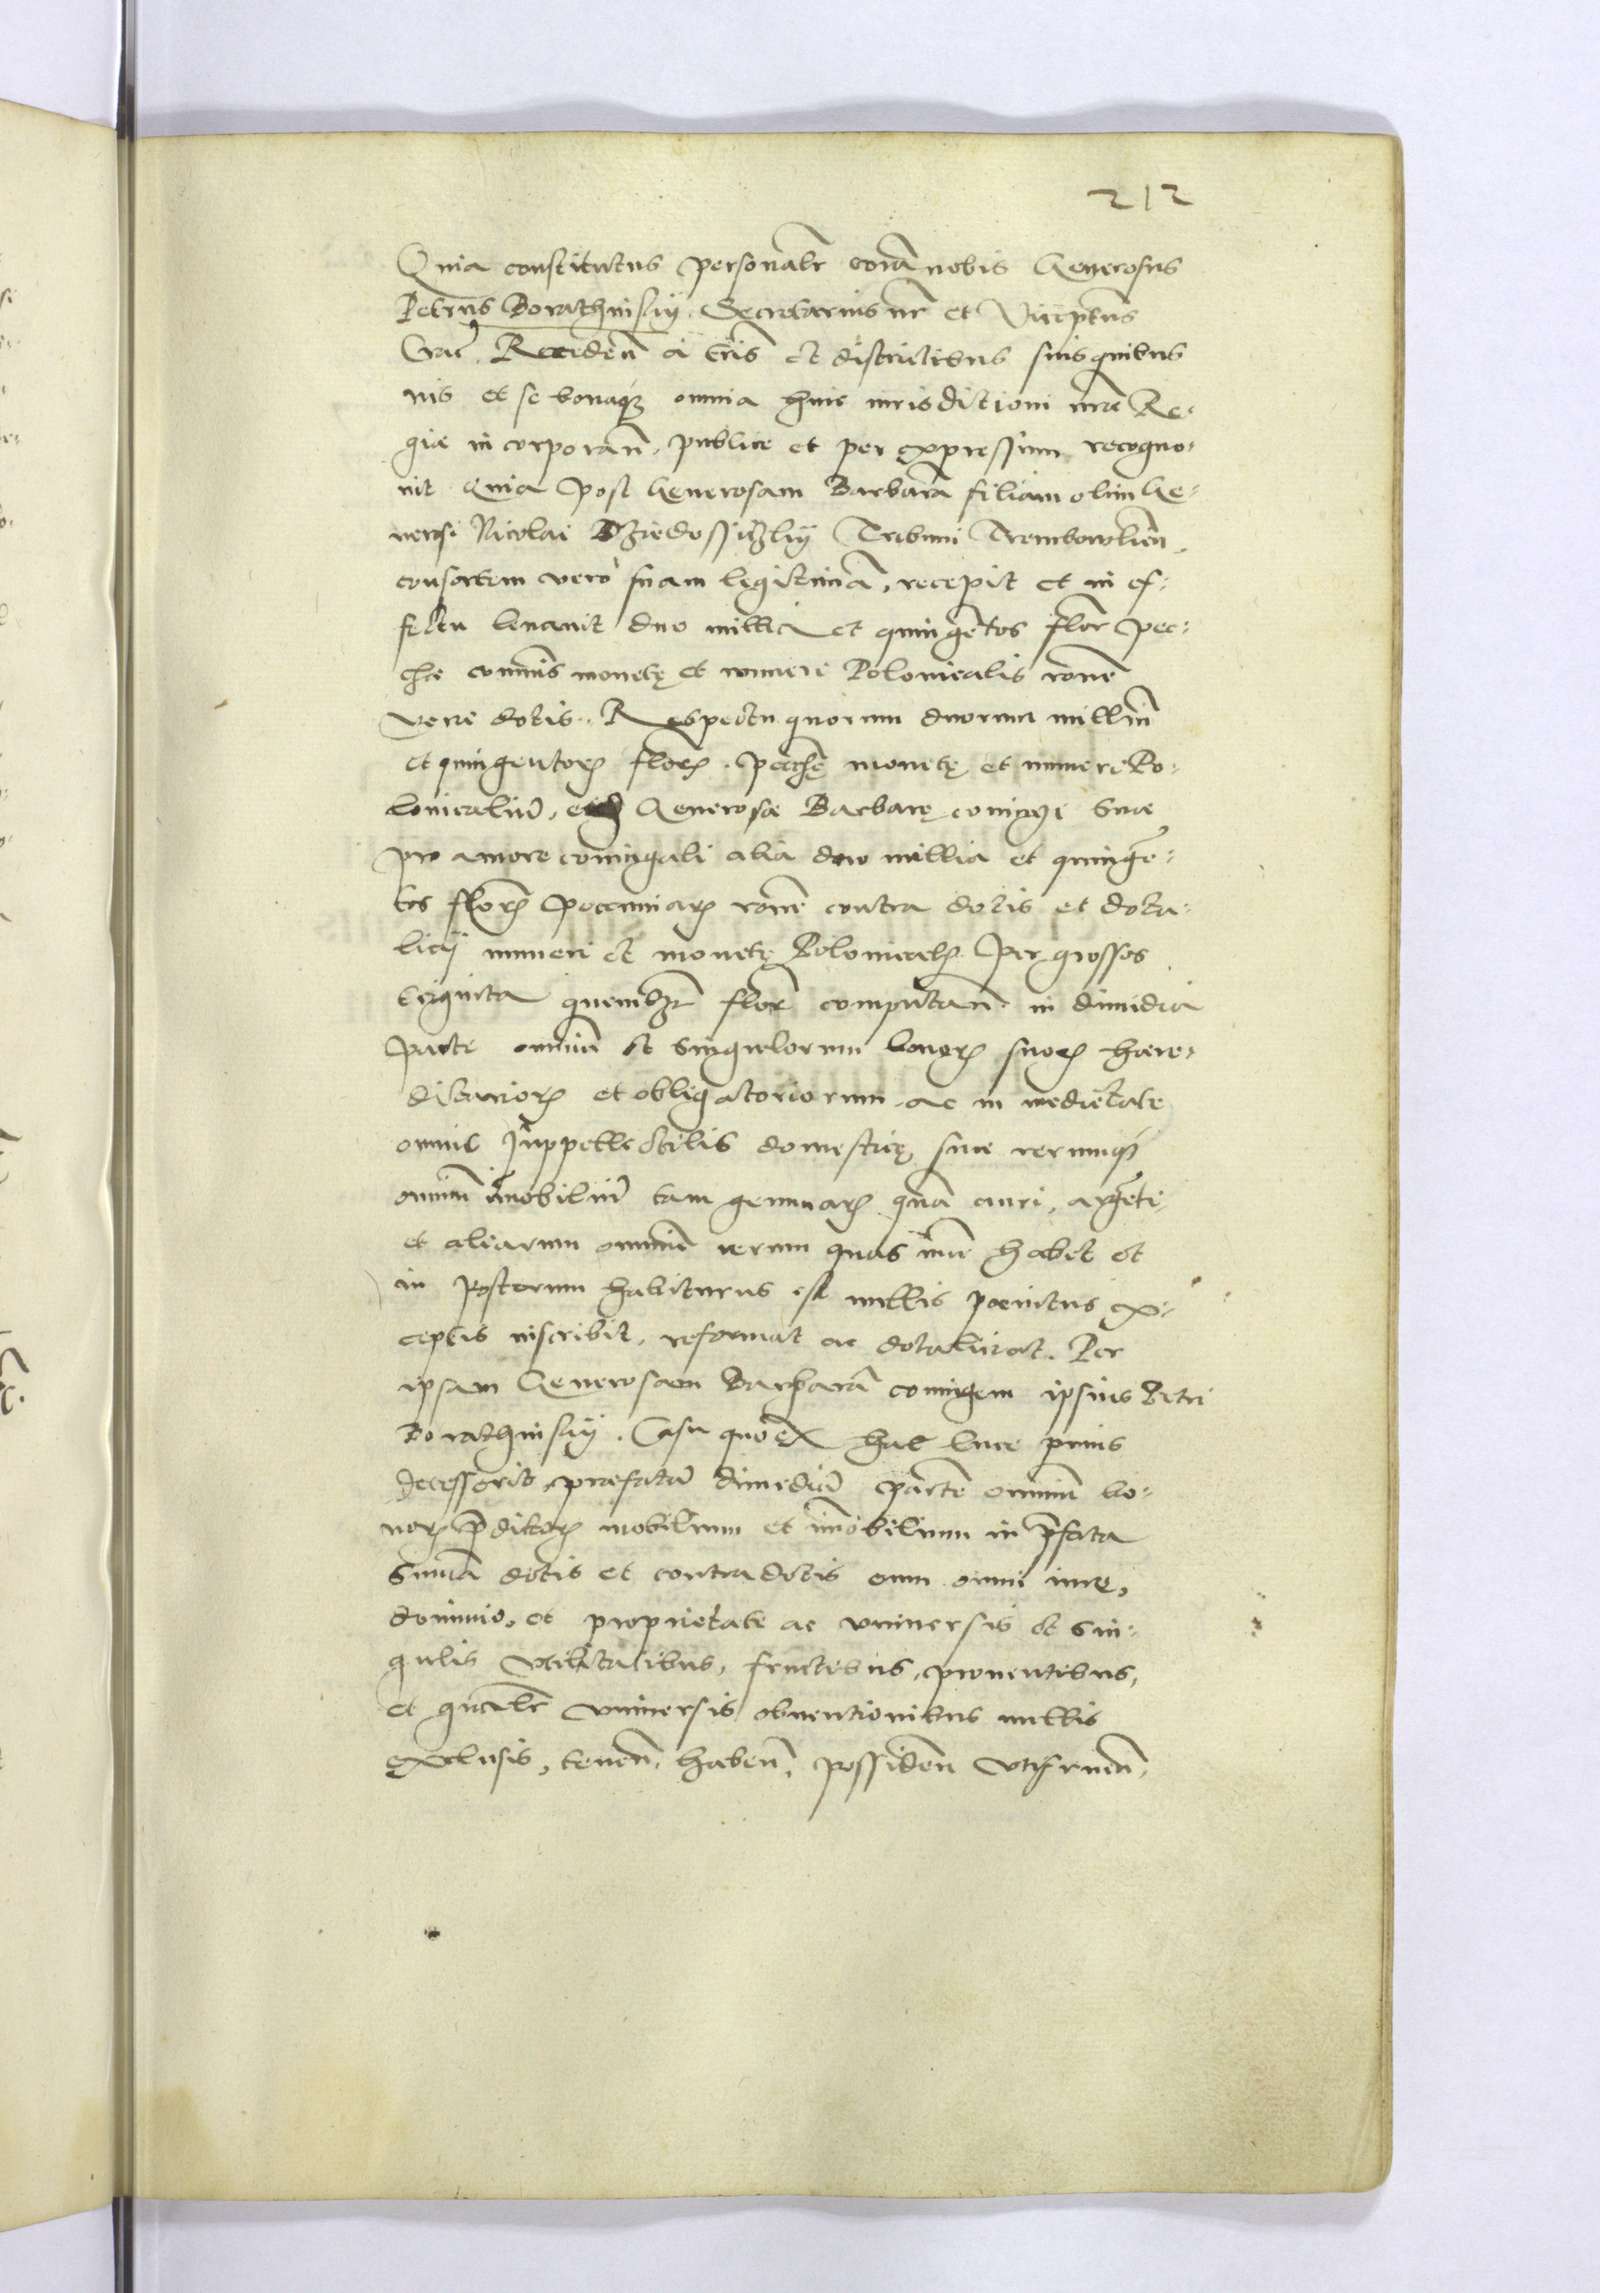 212
Quia constitutus personalr corã nobis Generosus
Petrus Borathinsky. Secretarius nr et Viicptũs
Crac̃. Receden̄ a t̃ris et districtibus suis quibus
uis et se bonaq3 omnia huic iurisdictioni nr̃ae Re-
giae incorporan̄. publice et per expressum recogno-
uit Quia post Generosam Barbarã filiam olim Ge-
nerosi Nicolai Dziedossiczky Tribuni Trembowlien̄
consortem verò suam legitimã, recepit et in ef-
fectu leuauit duo millia et quingẽtos flor pec-
chae com̃nis monetę et numeri Polonicalis rõne
verae dotis. Respectu quorum duorum milliũ
et quingentoꝝ floꝝ. pecchę monetę et numeri Po-
lonicaliũ, Generosae Barbarę coniugi suae
pro amore coniugali alia duo millia et quingẽ-
tos floꝝ pecuniaꝝ rõne contra dotis et dota-
licÿ numeri et monetę Polonicalꝫ per grossos
triginta quemlꝫt flor computan̄. in dimidia
parte omniũ et singulorum bonoꝝ suoꝝ haere-
ditarioꝝ et obligatoriorum ac in medietate
omnis suppellectilis domesticę suae rerumq3
omniũ imobiliũ tam gemmaꝝ quã auri, argẽti
et aliarum omniũ rerum quas nũc habet et
in posterum habiturus est nullis poenitus ex-
ceptis inscribit, reformat ac dotaliciat. Per
ipsam Generosam Barbarã coniugem ipsius Petri
Borathinsky. Casu quo ex hac luce prius
decesserit, praefatã dimediã partẽ omniũ bo-
noꝝ p̃dictoꝝ mobilium et im̃obilium in p̃fata
sum̃a dotis et contradotis cum omni iure,
dominio, et proprietate ac vniuersis et sin-
gulis vtilitatibus, fructibus, prouentibus,
et gñalr vniuersis obuentionibus nullis
exclusis, tenen̄. haben̄. possiden̄ vtifruen̄.